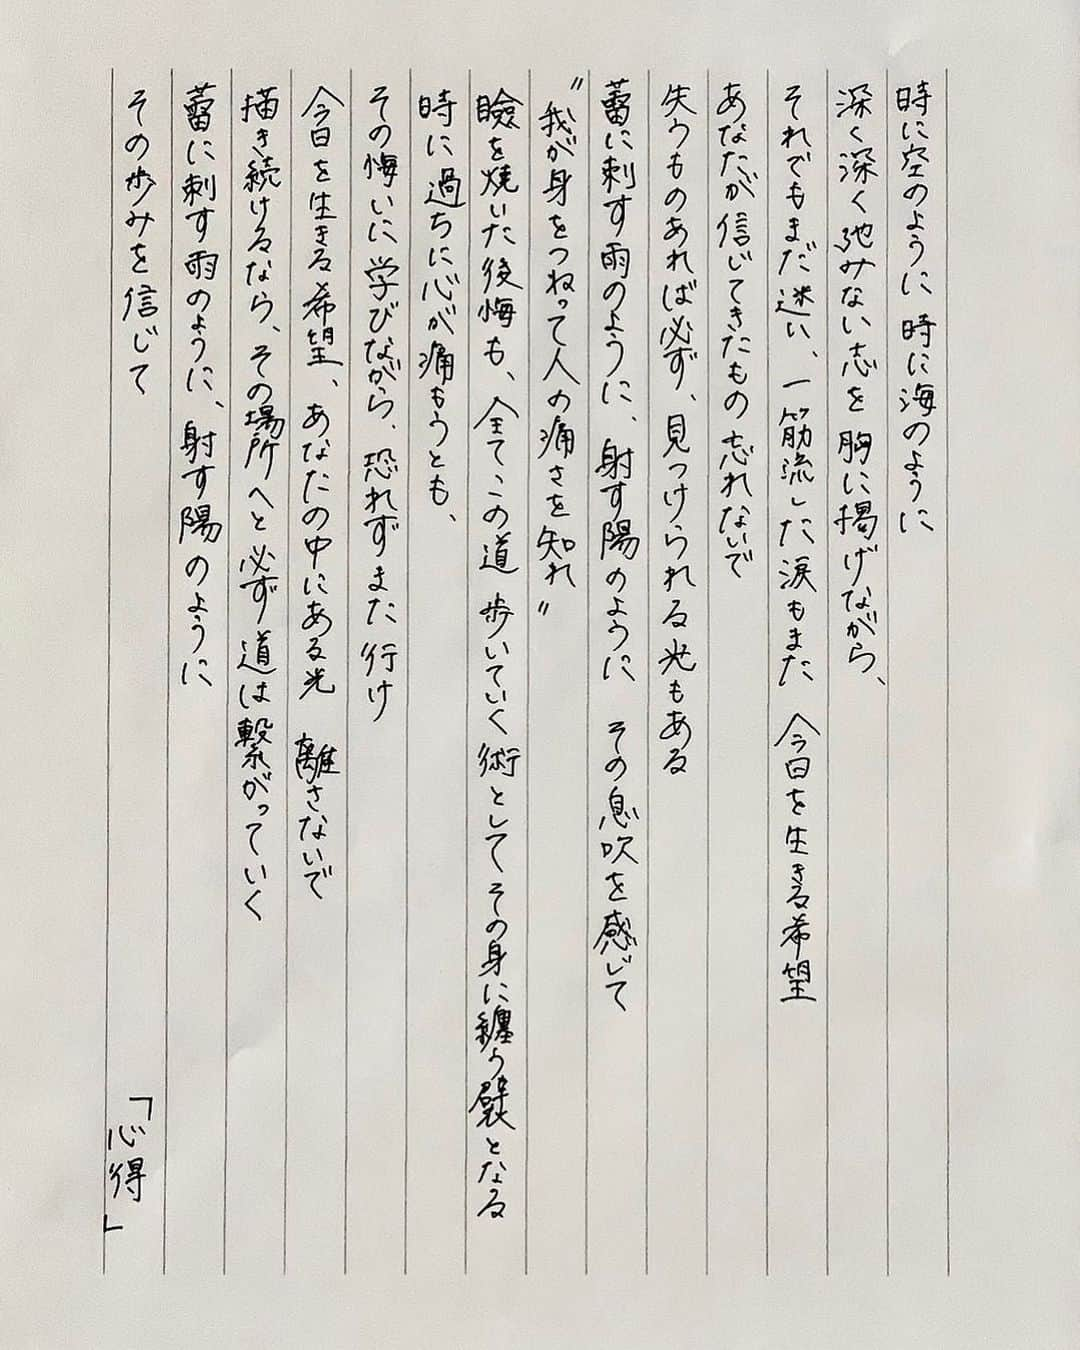 時に空のように 時に海のように
深く深く弛みない志を胸に掲げながら、
それでもまだ迷い、一筋流した涙もまた 今日を生きる希望
あなたが信じてきたもの忘れないで
失うものあれば必ず、見つけられる光もある
蕾に刺す雨のように、射す陽のように その息吹を感じて
〝我が身をつねって人の痛さを知れ〟
瞼を焼いた後悔も、全てこの道 歩いていく術としてその身に纏う襞となる
時に過ちに心が痛もうとも、
その悔いに学びながら、恐れずまた行け
今日を生きる希望、あなたの中にある光 離さないで
描き続けるなら、その場所へと必ず道は繋がっていく
蕾に刺す雨のように、射す陽のように
その歩みを信じて
「心得」